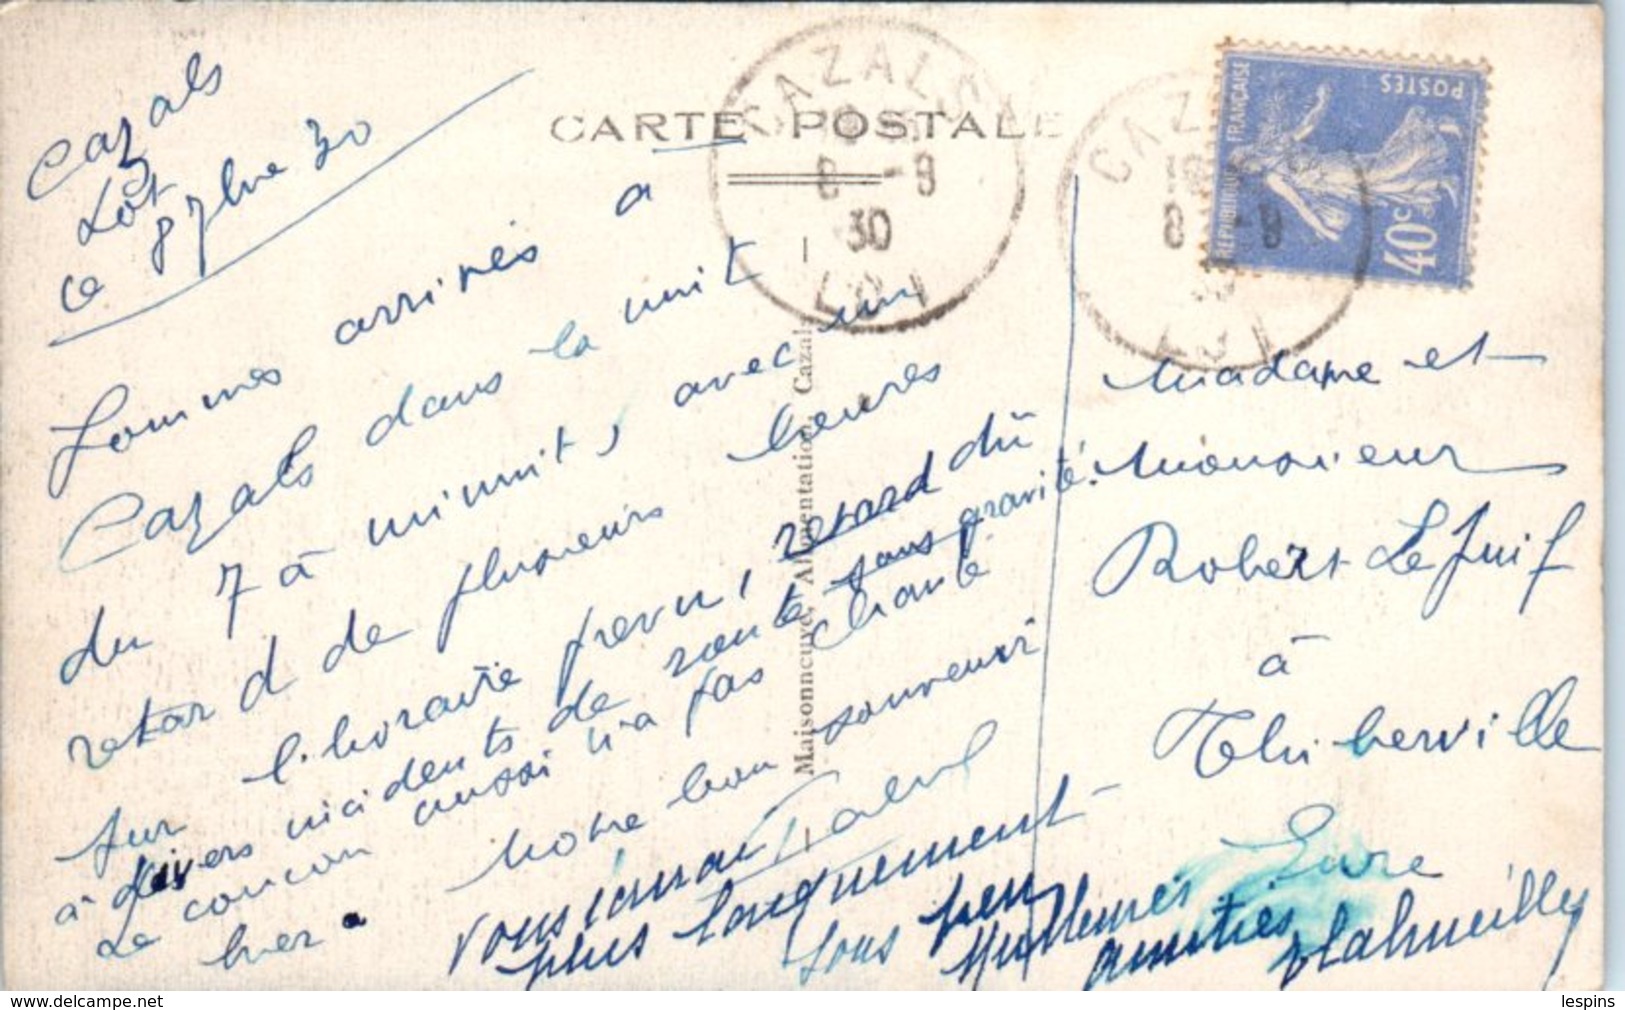 CARTE POSTALE
CAZALS
8 -9
30
LOT
CAZALS
8 -9
30
LOT
REPUBLIQUE FRANÇAISE
POSTES
40c
Cazals
Lot
ce 8 7bre 30
Sommes arrivés à
Cazals dans la nuit
du 7 à minuit, avec un
retard de plusieurs heures
sur l'horaire prévu, retard dû
à divers incidents de route sans gravité.
Le coucou aussi n'a pas chanté
hier.
Notre bon souvenir
Paul
vous écrirai
plus longuement
sous peu
Meilleures
amitiés
Madame et
Monsieur
Robert Le Juif
à
Thiberville
Eure
Maisonneuve, Alimentation, Cazals
lespins